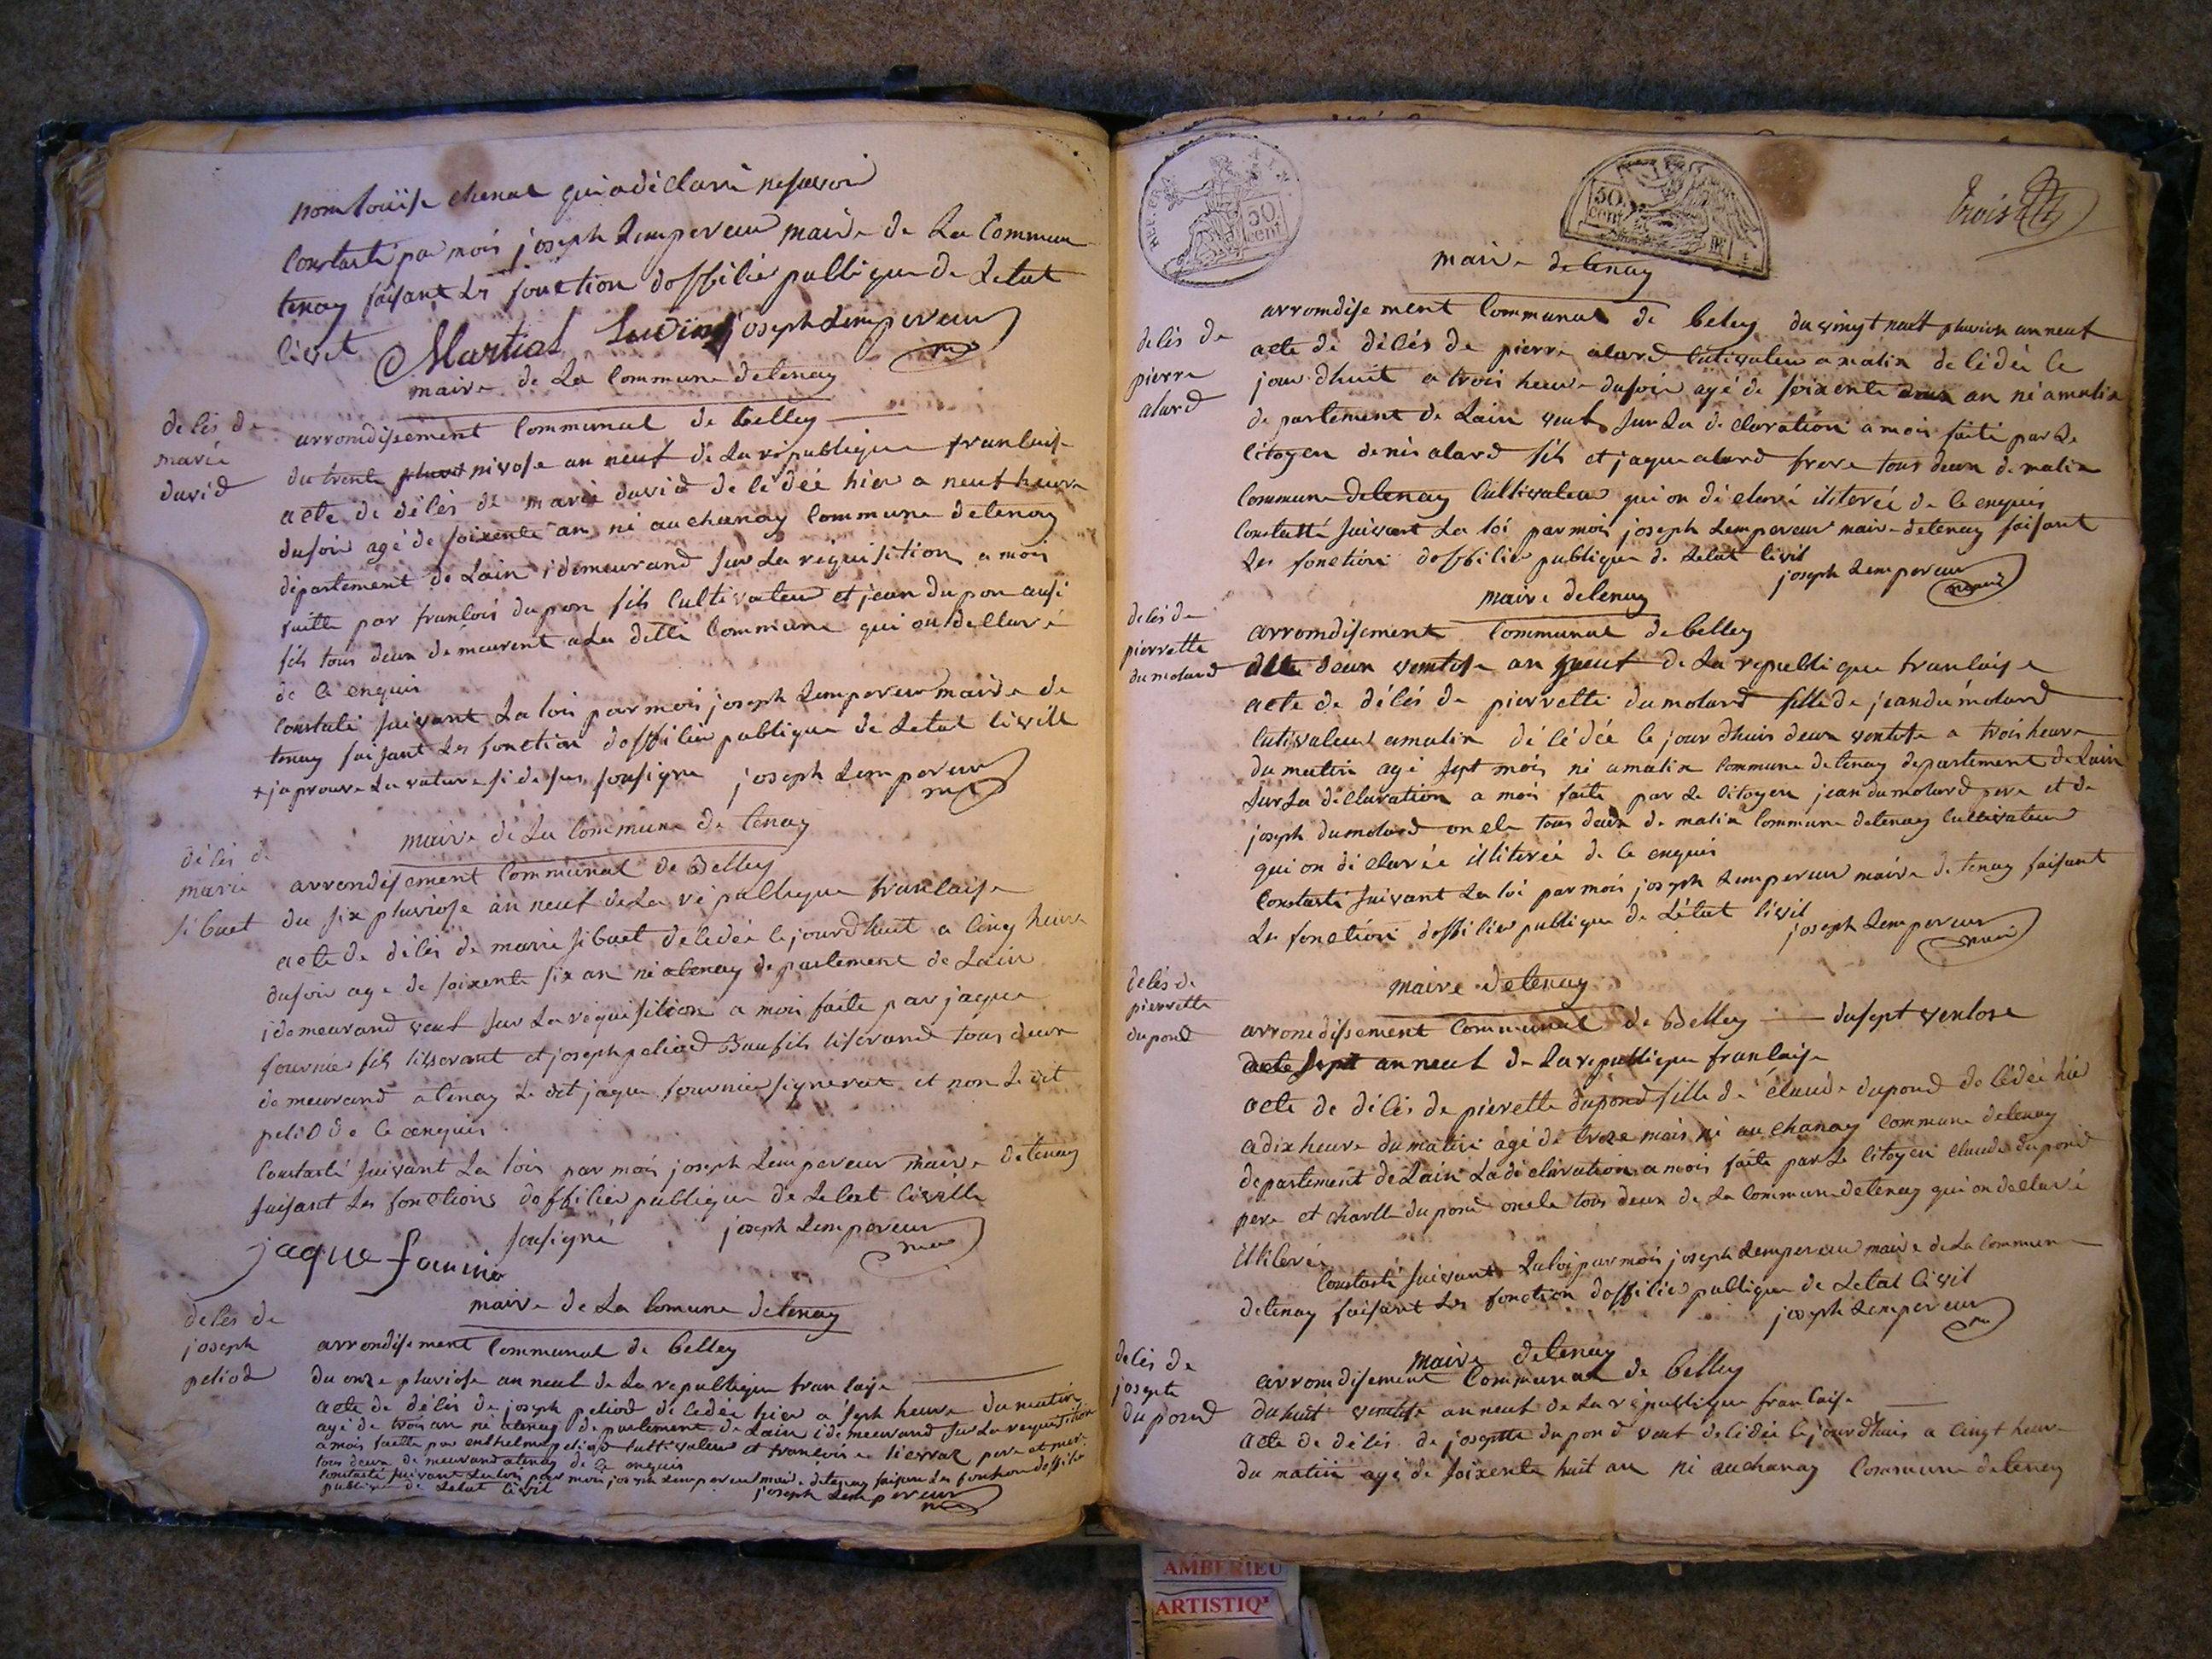 nom louise chenal qui a déclaré ne savoir
Constaté par mois joseph Lempereur maire de La Commune
tenay faisant Les fonction dofficier publique de Letat
civil Martial joseph Lempereur
maire de La Commune de tenay
deces de
marie
david
arromdisement Communal de belley
du trente nivose an neuf de La republique francaise
acte de déces de marie david de cedée hier a neuf heure
dusoir agé de soixente an né au chanay Commune de tenay
département de Lain i demeurand sur La requisition a mois
faitte par francois dupon fils Cultivateur et jean dupon ausi
fils tous deux demeurent a La ditte Commune qui on dellaré
de ce enquis
Constaté suivant La lois par mois joseph Lempereur maire de
tenay faisant Les fonction dofficier publique de Letat civille
+ japrouve La rature si desus sousigne joseph Lempereur
maire de La Commune de tenay
déces de
marie
sibuet
arrondisement Communal de Belley
du six pluviose an neuf de La republique francaise
acte de déces de marie sibuet décedée le jourdhuit a cinq heure
dusoir age de soixente six an né a tenay departement de Lain
i demeurand veuf sur La requisition a mois faite par jaque
fournier fils tisserant et joseph peliod Baufils tiserand tous deux
demeurand a tenay Le dit jaque fournier signerat et non Le dit
peliod de ce enquis
Constaté suivant La lois par mois joseph Lempereur maire de tenay
faisant Les fonctions dofficier publique de Letat civille
sousigné joseph Lempereur
jaque
maire de La Comune de tenay
deces de
joseph
peliod
arrondisement Communal de belley
du onze pluviose an neuf de La republique francaise
acte de déces de joseph peliod décedée hier a sept heure du matin
agé de trois an né a tenay departement de Lain i demeurand sur La requisition
a mois faitte par enthelme peliod Cultivateur et francoise pere et mere
tous deux demeurand a tenay de ce enquis
Constaté suivant La lois par mois joseph Lempereur maire de tenay faisan Les fonction dofficier
publique de Letat civil joseph Lempereur
50
cent.
50
cent
trois
maire de tenay
deces de
pierre
alard
arromdisement Communal de beley du vingt neuf pluviose an neuf
acte de déces de pierre alard Cutivateur a malix de cédée le
jour dhuit a trois heure dusoir agé de soixente an né a malix
departement de Lain veuf sur La declaration a mois faite par Le
Citoyen denis alard fils et jaque alard frere tous deux de malix
Commune de tenay Cultivateur qui on déclaré iliterée de ce enquis
Constatté suivant La loi par mois joseph Lempereur maire de tenay faisant
Les fonction dofficier publique de Letat civil
joseph Lempereur
maire
maire de tenay
deces de
pierrette
dumolard
arromdisement Communal de belley
deux ventose an neuf de La republique francaise
acte de déces de pierrette dumolard fille de jean dumolard
Cutivateur a malix décédée le jour dhuis deux ventose a trois heure
du matin agé sept mois né a malix Commune de tenay departement de Lain
sur La déclaration a mois faite par Le Citoyen jean dumolard pere et de
joseph dumolard oncle tous deux de malix Commune de tenay Cultivateur
qui on déclarée illiterée de ce enquis
Constaté suivant La loi par mois joseph Lempereur maire de tenay faisant
Les fonction dofficier publique de Létat civil
joseph Lempereur
maire de tenay
deces de
pierrette
dupond
arromdisement Communal de Belley du sept ventose
acte sept an neuf de La republique francaise
acte de déces de pierette dupond fille de claude dupond decédée hier
a dix heure du matin agé de treze mois né au chanay Commune de tenay
departement de Lain La déclaration a mois faite par Le Citoyen claude dupond
pere et charlle dupond oncle tous deux de La Commune de tenay qui on dellaré
illiteré
Constaté suivant La loi par mois joseph Lempereur maire de La Commune
de tenay faisant Les fonction dofficier publique de Letat civil
joseph Lempereur
maire de tenay
deces de
josepte
dupond
arromdisement Communal de belley
du huit ventose an neuf de La republique francaise
acte de déces de josepte dupond veuf decédée le jourdhuis a cingt heure
du matin agé de soixente huit an né au chanay Commune de tenay
AMBERIEU
ARTISTIQ